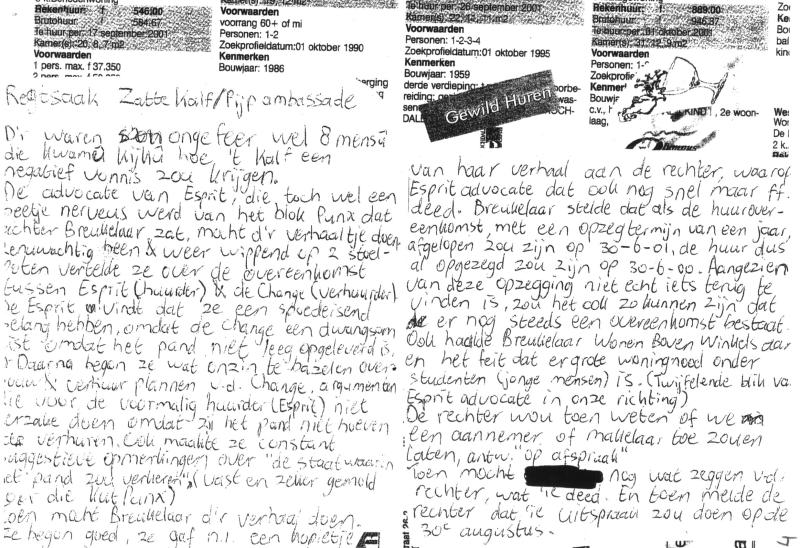 Rekenhuur: 546.00
Brutohuur: 584.67
Te huur per: 17 september 2001
Kamer(s): 20, 8, 7 m2
Voorwaarden
1 pers. max. f 37.350
Voorwaarden
voorrang 60+ of mi
Personen: 1-2
Zoekprofieldatum:01 oktober 1990
Kenmerken
Bouwjaar: 1986
Regtsaak Zatte Kalf/Pijp ambassade
D'r waren ongefeer wel 8 mensu
die kwamu kijku hoe 't Kalf een
negatief vonnis zou krijgen.
De advocate van Esprit, die toch wel een
beetje nerveus werd van het blok Punx dat
achter Breukelaar zat, mocht d'r verhaaltje doen
zenuwachtig heen & weer wippend op 2 stoel-
poten vertelde ze over de overeenkomst
tussen Esprit (huurder) & de Change (verhuurder)
De Esprit vindt dat ze een spoedeisend
belang hebben, omdat de Change een dwangsom
eist omdat het pand niet leeg opgeleverd is.
Daarna begon ze wat onzin te bazelen over
bouw & verhuur plannen v.d. Change, argumenten
die voor de voormalig huurder (Esprit) niet
terzake doen omdat zij het pand niet hoeven
te verhuren. Ook maakte ze constant
suggestieve opmerkingen over "de staat waarin
het pand zou verkeren" (vast en zeker gemold
door die kut Punx)
Toen mocht Breukelaar d'r verhaal doen.
Ze begon goed, ze gaf n.l. een kopietje
Te huur per: 26 september 2001
Kamer(s): 22, 12, 11 m2
Voorwaarden
Personen: 1-2-3-4
Zoekprofieldatum:01 oktober 1995
Kenmerken
Bouwjaar: 1959
derde verdieping:
Gewild Huren
Rekenhuur: 889.00
Brutohuur: 946.87
Te huur per: 01 oktober 2001
Kamer(s): 31, 12, 9 m2
Voorwaarden
Personen: 1-
Zoekprofie
Kenmer
Bouwj
c.v., h
KIND!, 2e woon-
laag,
van haar verhaal aan de rechter, waarop
Esprit advocate dat ook nog snel maar ff.
deed. Breukelaar stelde dat als de huurover-
eenkomst, met een opzegtermijn van een jaar,
afgelopen zou zijn op 30-6-01, de huur dus
al opgezegd zou zijn op 30-6-00. Aangezien
van deze opzegging niet echt iets terug te
vinden is, zou het ook zo kunnen zijn dat
er nog steeds een overeenkomst bestaat.
Ook haalde Breukelaar Wonen Boven Winkels aan
en het feit dat er grote woningnood onder
studenten (jonge mensen) is. (Twijfelende blik van
Esprit advocate in onze richting)
De rechter wou toen weten of we
een aannemer of makelaar toe zouen
laten, antw. "op afspraak"
Toen mocht nog wat zeggen v.d.
rechter, wat 'ie deed. En toen melde de
rechter dat 'ie uitspraak zou doen op de
30e augustus.
4